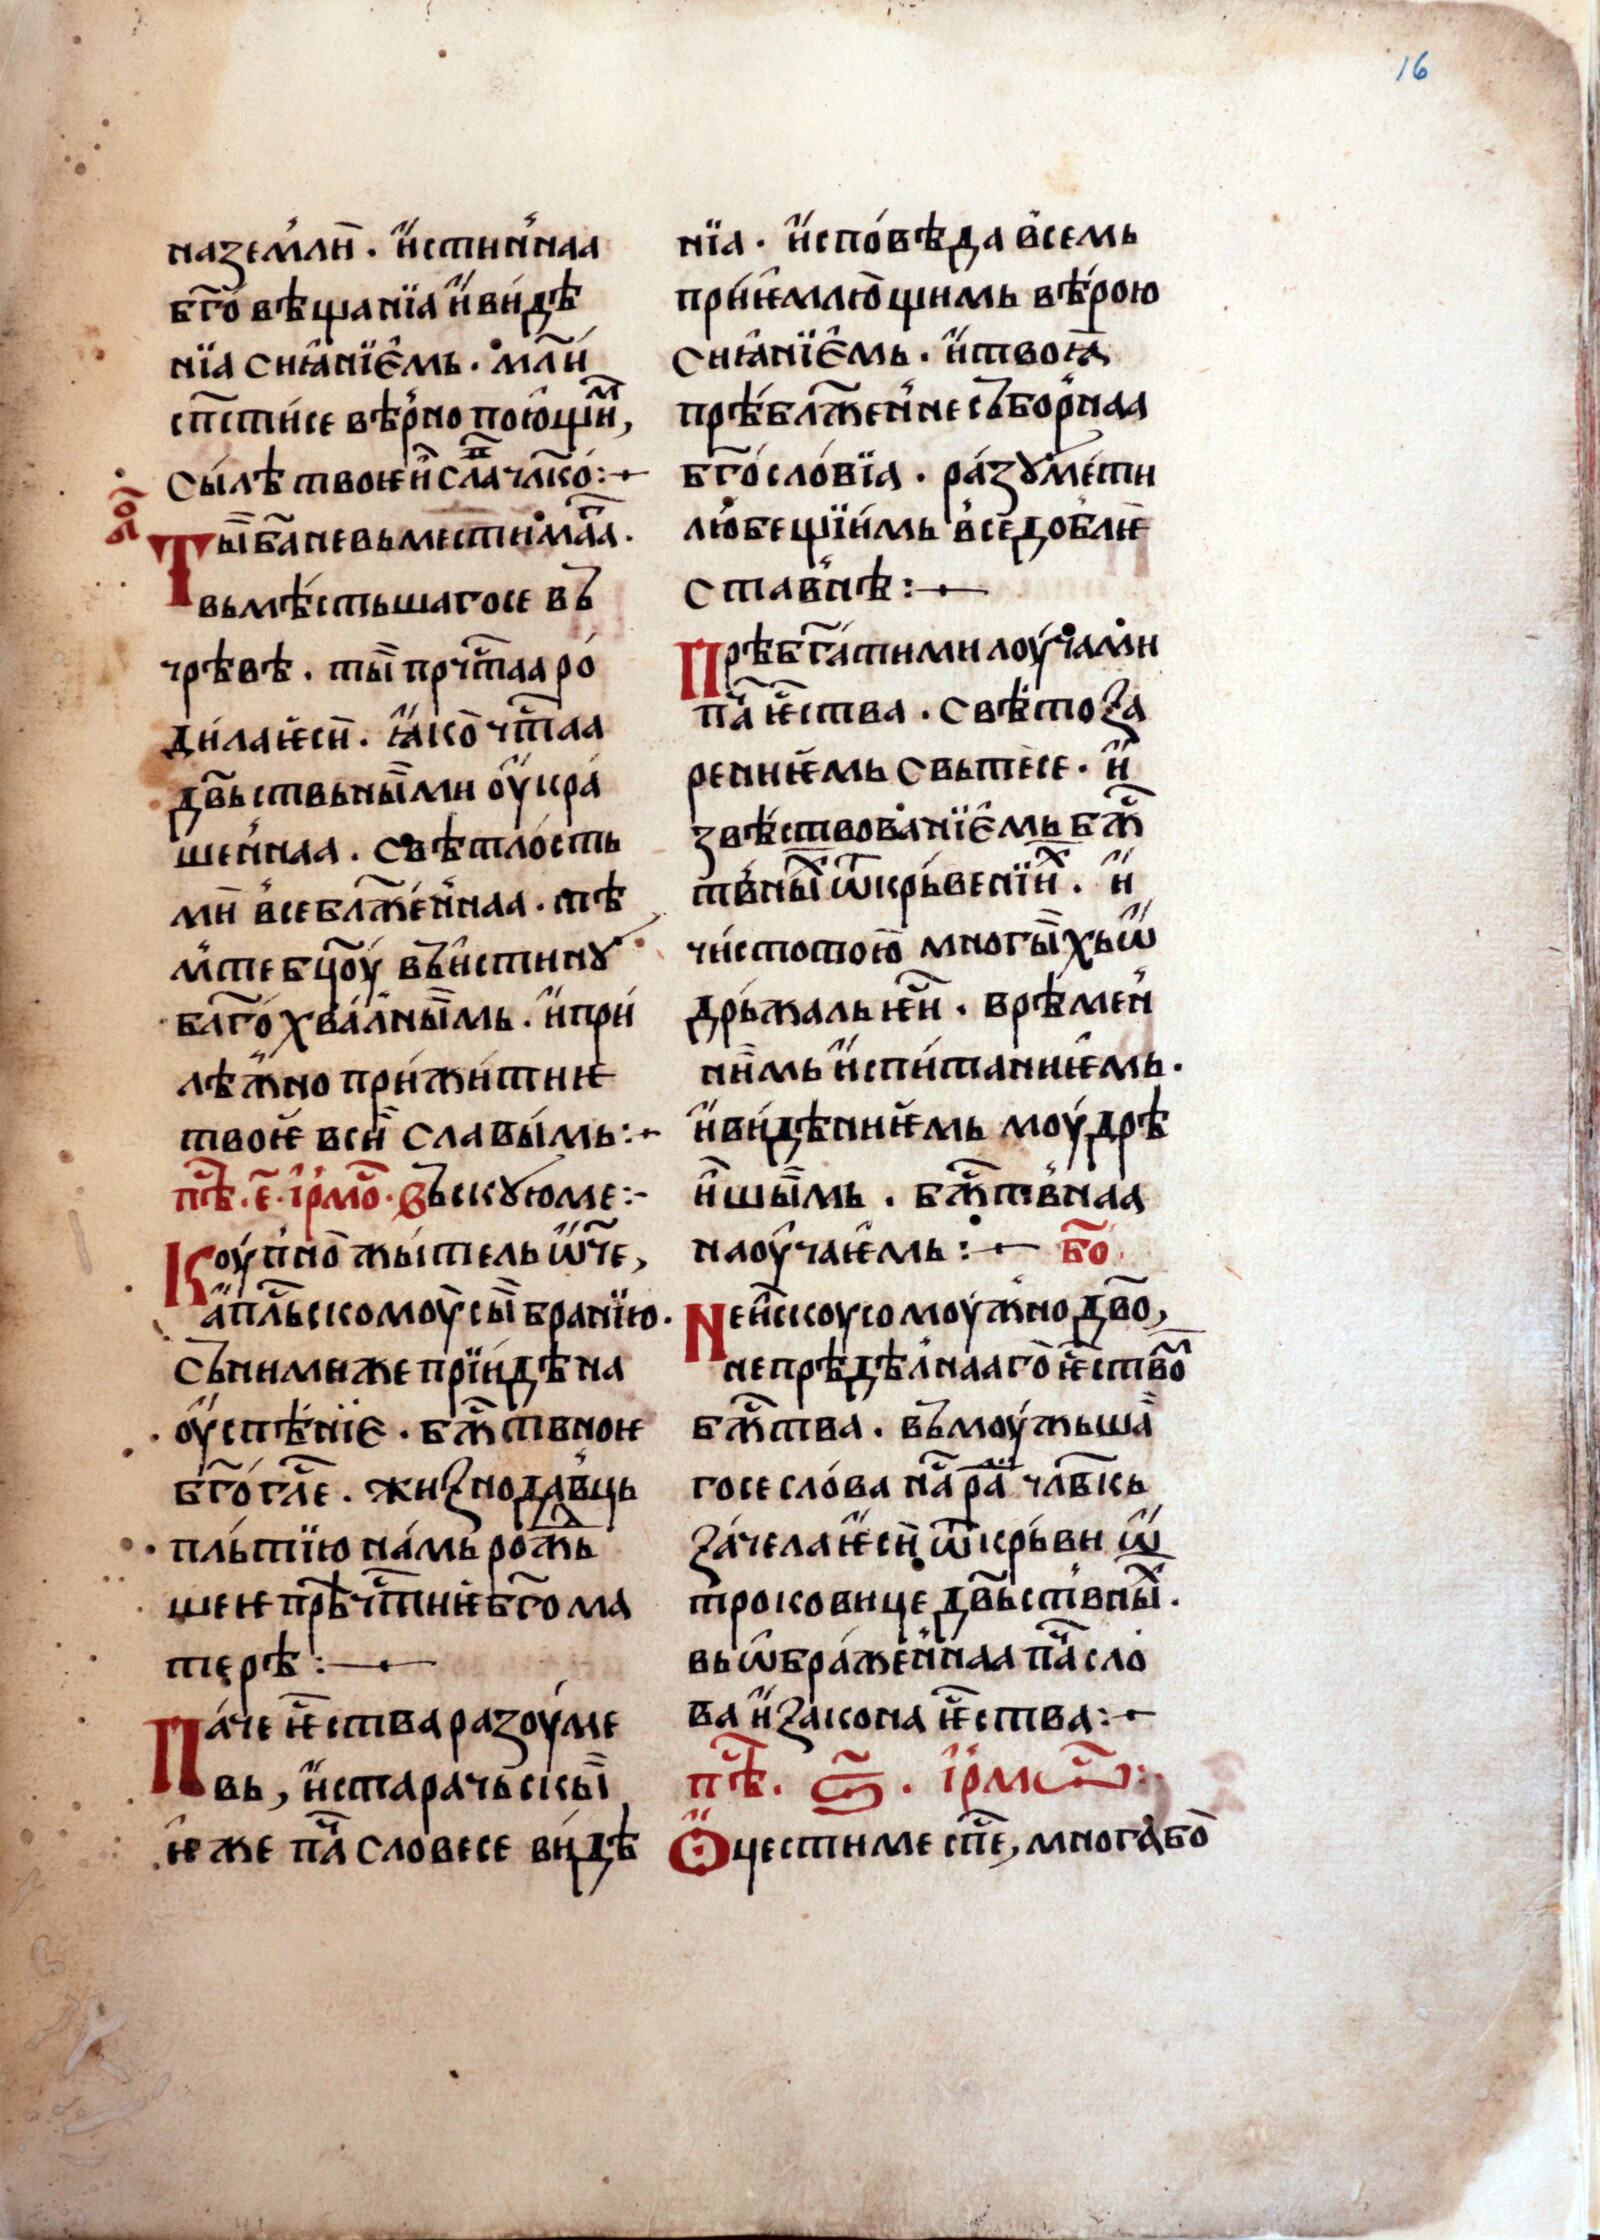 16
наземлы̀ . и҆стин̾наа
бг҃овѣщанїа и҆видѣ
нїа сꙗнїе́мь . мл҃и
сп҃стисе вѣрно пою́щиⷨ,
сылѣ твоѥи̑ сл҃ачл҃ко :
бо҃
Ты̏ ба҃ невьместимаⷢа .
вьмѣстьшагосе въ
чрѣвѣ . ты̏ прчⷭ҇таа ро
дилаѥси̏ . ꙗ҆ко̀ чⷭ҇таа
дв҃ьствьны̏ми оу҆кра
шен̾наа . свѣтлость
ми̏ всеблж҃ен̾наа . тѣ
мте бц҃оу въ́истинꙋ
благ҃охвалны̏мь . и҆при
лѣжно прижитиѥ
твоѥ̀ вси̏ славы́мь :
пѣⷭ҇ . е҃ . і҆рмоⷭ҇ . Въскꙋюме :
Коуп̾но̀ жытель ѿч҃е,
а҆пл҃ьскомоу̀ сы̏бранїю .
Сънимиже прїидѣ на
оу҆спѣнїе . бжⷭ҇твноѥ
бг҃огл҃е . жиꙁнодавць
пльтїю намь рожⷣь
шеѥ прѣчⷭ҇тиѥ бг҃ома
терѣ :
Паче ѥⷭ҇ства разоуме
вь, и҆старачьскы̏
ѥ҆же паⷱ҇ словесе видѣ
нїа . и҆сповѣда всемь
приѥмлю̀щимь вѣрою
сꙗнїе́мь . и҆твоꙗ̀
прѣблж҃ен̾не съборнаа
бг҃ословїа . разꙋмети
любещїимь вседоблѥ̀
ставнѣ :
Прѣбг҃атими лоучами
паⷱ҇ ѥⷭ҇ства . свѣтоꙁа
рениѥмь свьтесе . и҆
звѣствованїе́мь бжⷭ҇
твны̏ⷯ ѿкрьвенїиⷯ . и҆
чистотою̀ многы̏хь ѿ
дрьжальѥⷭ҇и . врѣмен̾
ни̏мь и҆спитаниѥмь .
и҆видѣниѥмь моудрѣ
и̏шы̏мь . бжⷭ҇твнаа
наоу҆чаѥмь : бо҃
Неи̏скоусомоужно дв҃о,
непрѣдѣлнааго̀ ѥⷭ҇ствоⷨ
бжⷭ҇тва . въмоужьша
госе слова наⷭ҇ раⷣ чл҃вкь
ꙁачелаѥси̏ ѿкрьви ѿ
троковице дв҃ьствны̏ⷯ .
вьѡ҆бражен̾наа паⷱ҇ сло
ва и҆ꙁакона ѥⷭ҇ства :
пѣⷭ҇ . ѕ҃ . і҆рмѡⷭ҇ :
Оцестиме сп҃се, многабо̀